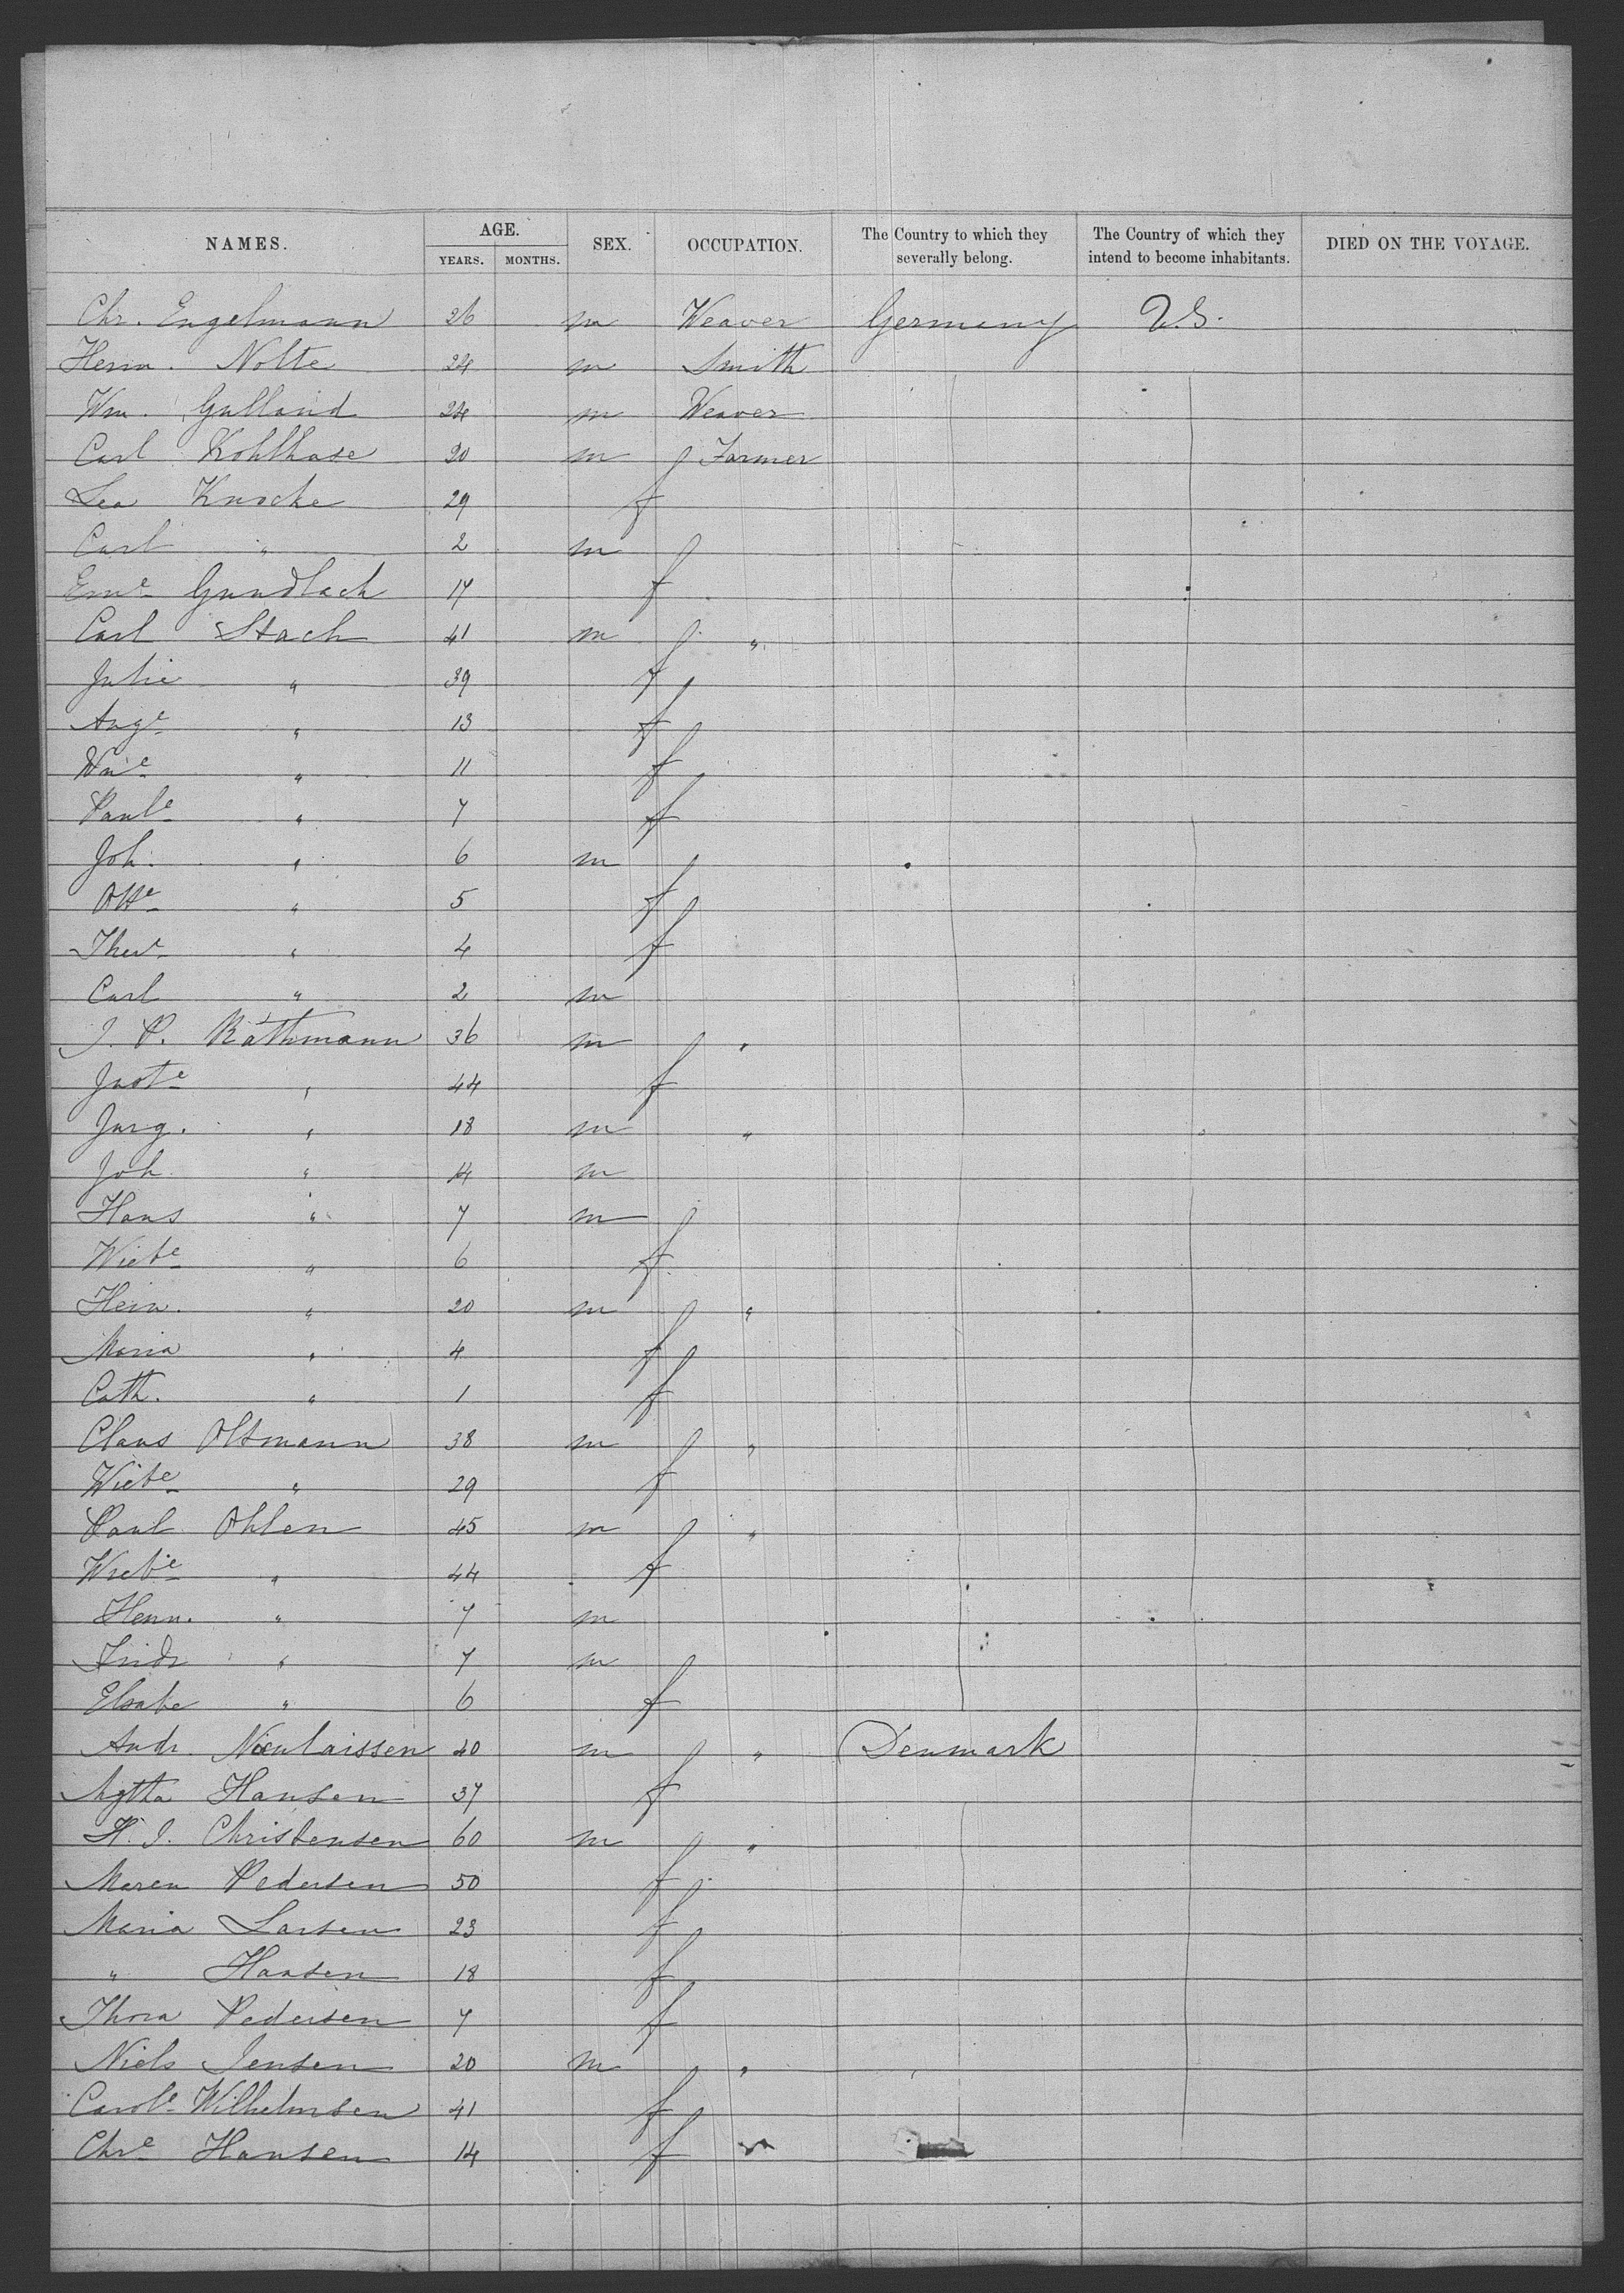 NAMES. AGE. SEX. OCCUPATION. The Country to which they severally belong. The Country of which they intend to become inhabitants. DIED ON THE VOYAGE.
YEARS. MONTHS.
Chr. Engelmann 26 m Weaver Germany U.S.
Herm. Nolte 24 m Smith
Wm. Galland 24 m Weaver
Carl Kohlhase 20 m Farmer
Lea Knocke 29 f
Carl " 2 m
Eme Gundlach 17 f
Carl Stach 41 m "
Julie " 39 f
Auge " 13 f
Wme " 11 f
Paule " 7 f
Joh. " 6 m
Otte " 5 f
" 4 f
Carl " 2 m
J. P. Rathmann 36 m "
" 44 f
Jurg. " 18 m "
Joh. " 14 m
Hans " 7 m
Wiebe " 6 f
Hein. " 20 m "
Maria " 4 f
Cath. " 1 f
Claus Oltmann 38 m "
Wiebe " 29 f
Paul Ohlen 45 m "
Wiebe " 44 f
Henn. " 7 m
Fridr " 7 m
Elsabe " 6 f
Andr. Nicolaissen 40 m " Denmark
Agtha Hansen 37 f
H. J. Christensen 60 m "
Maren Pedersen 50 f
Maria Larsen 23 f
" Hansen 18 f
Thora Pedersen 7 f
Niels Jensen 20 m "
Carole Wilhelmsen 41 f
Chre Hansen 14 f